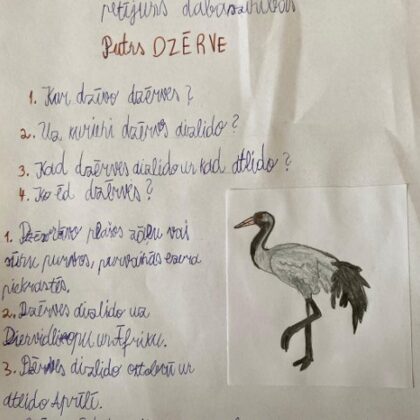 pētījums dabaszinībās
Putns DZĒRVE
1. Kur dzīvo dzērves?
2. Uz kurieni dzērves aizlido?
3. Kad dzērves aizlido un kad atlido?
4. Ko ēd dzērves?
1. plašos zāļu vai
sūnu purvos, purvainās ezera
piekrastēs.
2. Dzērves aizlido uz
Dienvideiropu un Āfriku.
3. Dzērves aizlido oktobrī un
atlido Aprīlī.